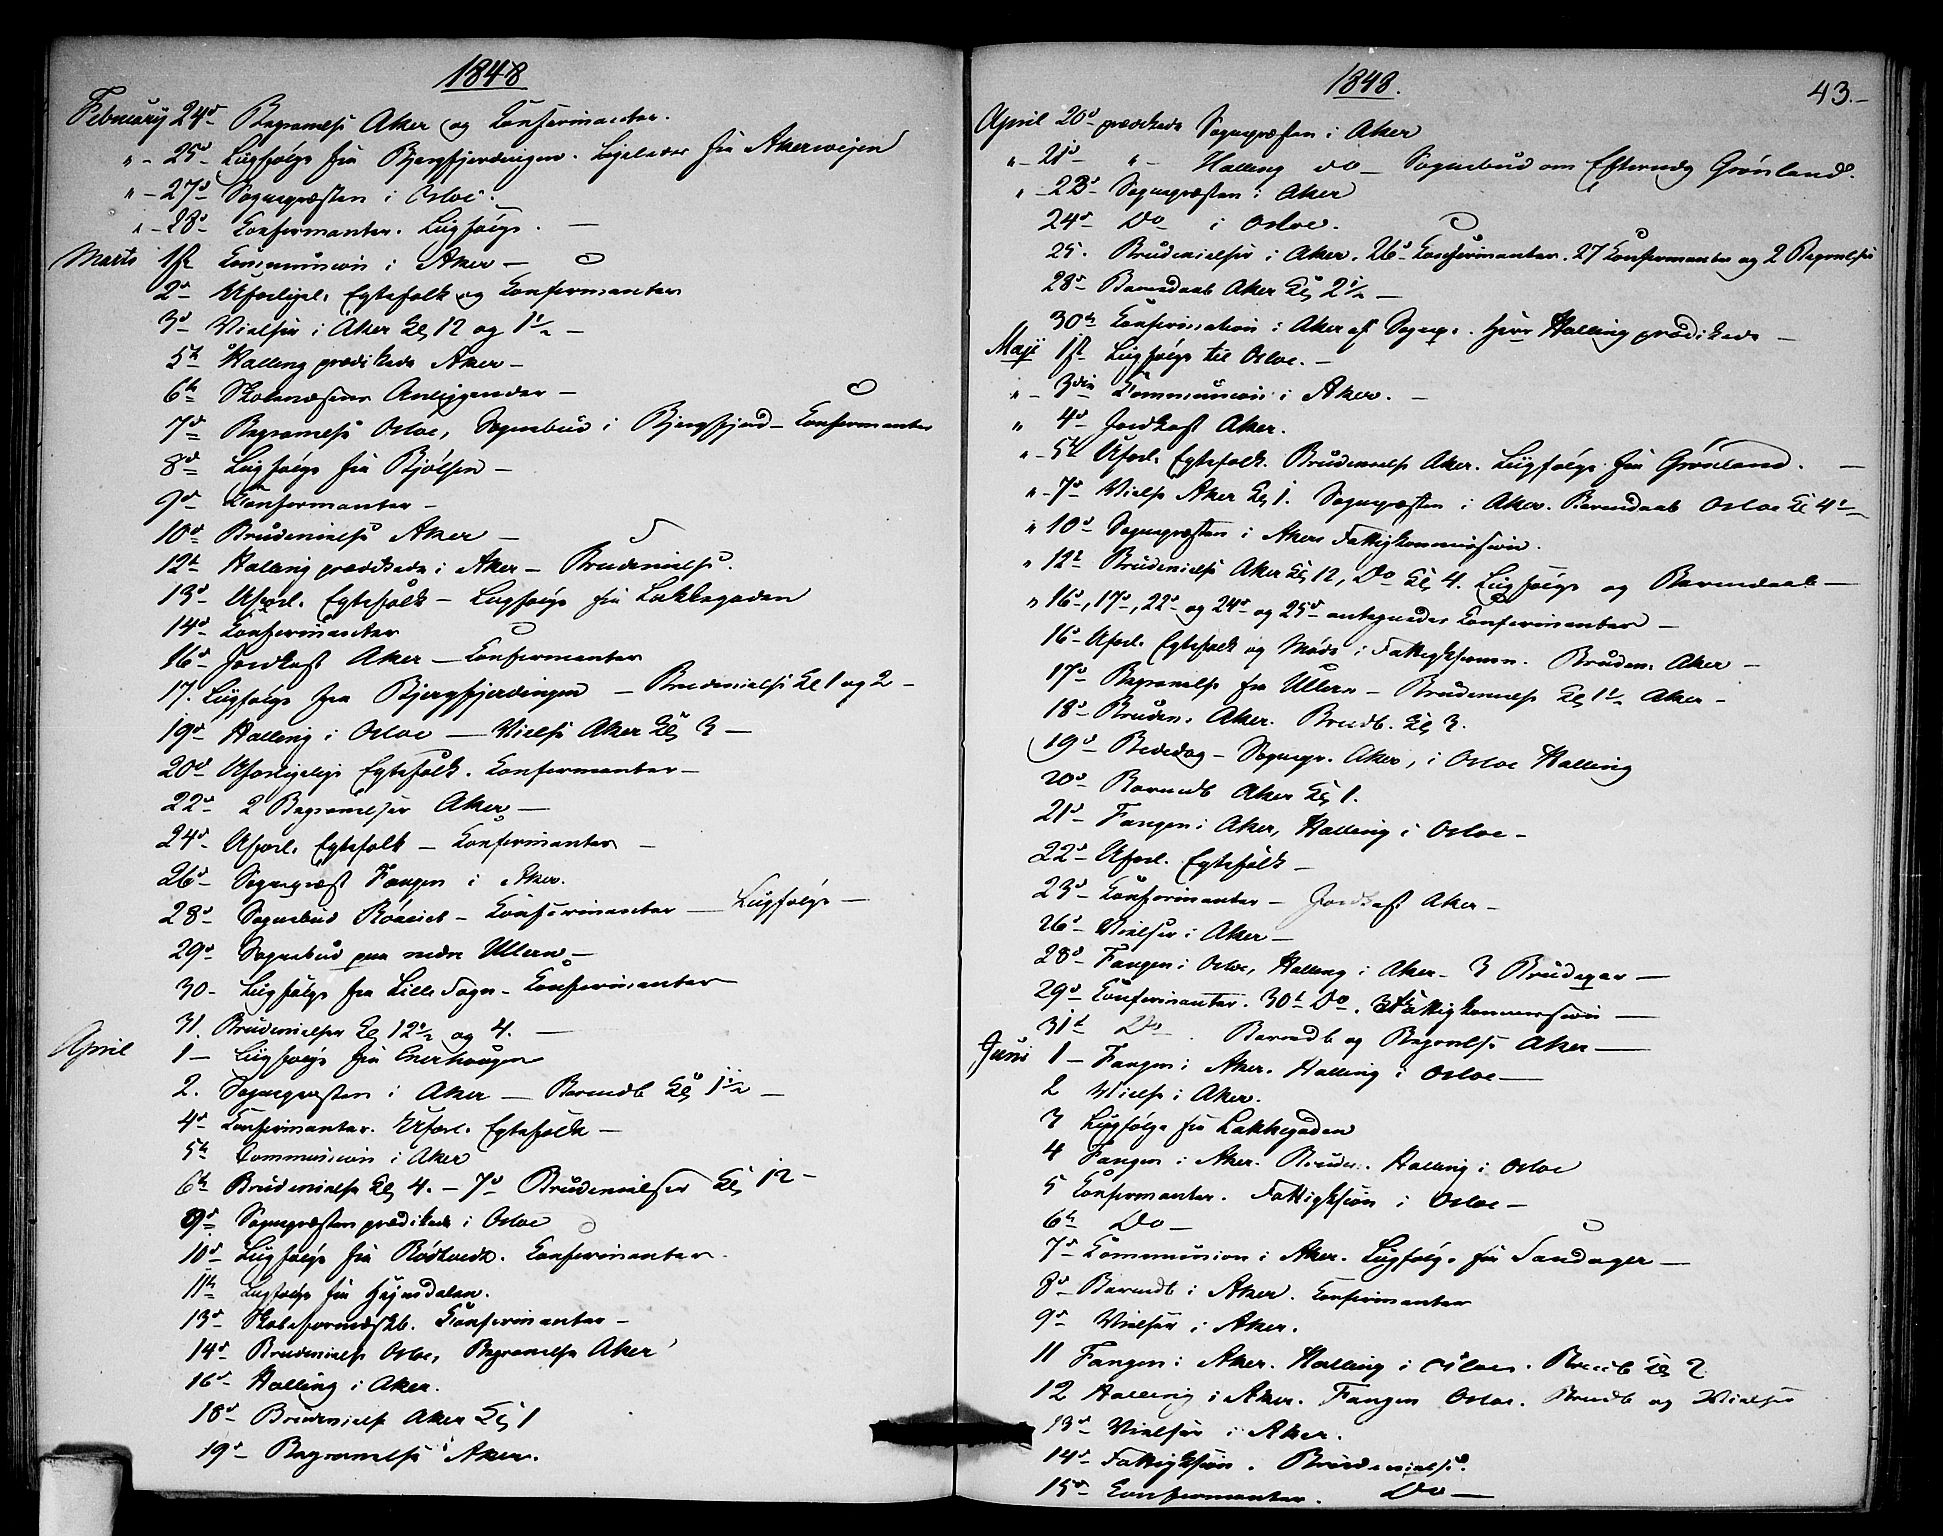 1848
Februar 24d Begravelse Aker og Confirmanter.
" - 25d Liigfølge fra Bjergfjerdingen. Ligeledes fra Akersvejen
" - 27d Sognepræsten i Osloe.
" - 28d Confirmanter. Liigfølge. —
Marts 1ste Communion i Aker —
2d Uforligel. Egtefolk og Confirmanter
3d Vielser i Aker Kl 12 og 1½ —
5te Halling prædikede Aker —
6te Skolevæsenets Anliggender —
7d Begravelse Osloe, Sognebud i Bjergfjerd — Confirmanter
8d Liigfølge fra Bjølsen —
9d Confirmanter —
10d Brudevielse Aker —
12te Halling prædikede i Aker — Brudevielse.
13d Uforl. Egtefolk — Liigfølge fra Lakkegaden
14d Confirmanter
16d Jordkast Aker — Confirmanter
17. Liigfølge fra Bjergfjerdingen — Brudevielse Kl 1 og 2 —
19d Halling i Osloe — Vielse Aker Kl 3 —
20d Uforligelige Egtefolk. Confirmanter —
22d 2 Begravelser Aker —
24d Uforl. Egtefolk — Confirmanter —
26d Sognepræst Fangen i Aker.
28d Sognebud — Confirmanter — Liigfølge —
29d Sognebud paa nedre Ullern —
30 - Liigfølge fra Lille Sogn — Confirmanter
31. Brudevielser Kl 12½ og 4. —
April 1 — Liigfølge fra Enerhougen
2. Sognepræsten i Aker — Barnedb Kl 1½ —
4d Confirmanter. Uforl. Egtefolk —
5te Communion i Aker
6te Brudevielse Kl 4. — 7d Brudevielser Kl 12 —
9d Sognepræsten prædikede i Osloe
10d Liigfølge fra Rødtvedt. Confirmanter.
11te Liigfølge fra
13d Confirmanter —
14d Brudevielse Osloe, Begravelse Aker
16d Halling i Aker.
18d Brudevielse Aker Kl 1
19d Begravelse i Aker.
1848.
43.-
April 20d prædikede Sognepræsten i Aker
" - 21d " - Halling do — Sognebud om Efterm Grønland.
" - 23d Sognepræsten i Aker
24d Do i Osloe.
25. Brudevielser i Aker. 26d Confirmanter. 27 Confirmanter og 2 Begravelser
28d Barnedaab Aker Kl 2½ —
30te Confirmation i Aker af Sognep. Herr Halling prædikede —
Maji 1ste Liigfølge til Osloe. —
" - 3die Communion i Aker. —
" 4d Jordkast Aker.
" - 5te Uforl. Egtefolk. Brudevielse Aker. Liigfølge fra Grønland. —
" - 7d Vielse Aker Kl 1. Sognepræsten i Aker. Barnedaab Osloe Kl 4½
" 10d Sognepræsten i Akers Fattigkommission.
" 12te Brudevielse Aker Kl 12, Do Kl 4. Liigfølge og Barnedaab —
" 16d, 17d, 22d og 24d og 25d antegnedes Confirmanter —
16d Uforl. Egtefolk og Møde i Fattigkomm. Bruden. Aker —
17d Begravelse fra Ullern — Brudevielse Kl 1½ Aker —
18d Bruden. Aker. Kl 3.
19d Bededag — Sognepr. Aker, i Osloe Halling
20d Barnedb Aker Kl 1.
21d Fangen i Aker, Halling i Osloe —
22d Uforl. Egtefolk —
23d Confirmanter — Jordkast Aker —
26d Vielser i Aker —
28d Fangen i Osloe, Halling i Aker — 3 Brudepar —
29d Confirmanter. 30te Do. Fattigkommission —
31te Do. Barnedb og Begravelse Aker —
Juni 1 — Fangen i Aker. Halling i Osloe —
2 Vielse i Aker.
3 Liigfølge fra Lakkegaden
4 Fangen i Aker. Bruden. Halling i Osloe
5 Confirmanter. i Osloe —
6te Do —
7d Communion i Aker. Liigfølge fra Sandager —
8d Barnedb i Aker. Confirmanter
9d Vielser i Aker.
11 Fangen i Aker. Halling i Osloe. Kl 2
12 Halling i Aker. Fangen Osloe. og Vielser
13d Vielser i Aker.
14d Brudevielse.
15d Confirmanter. Do —